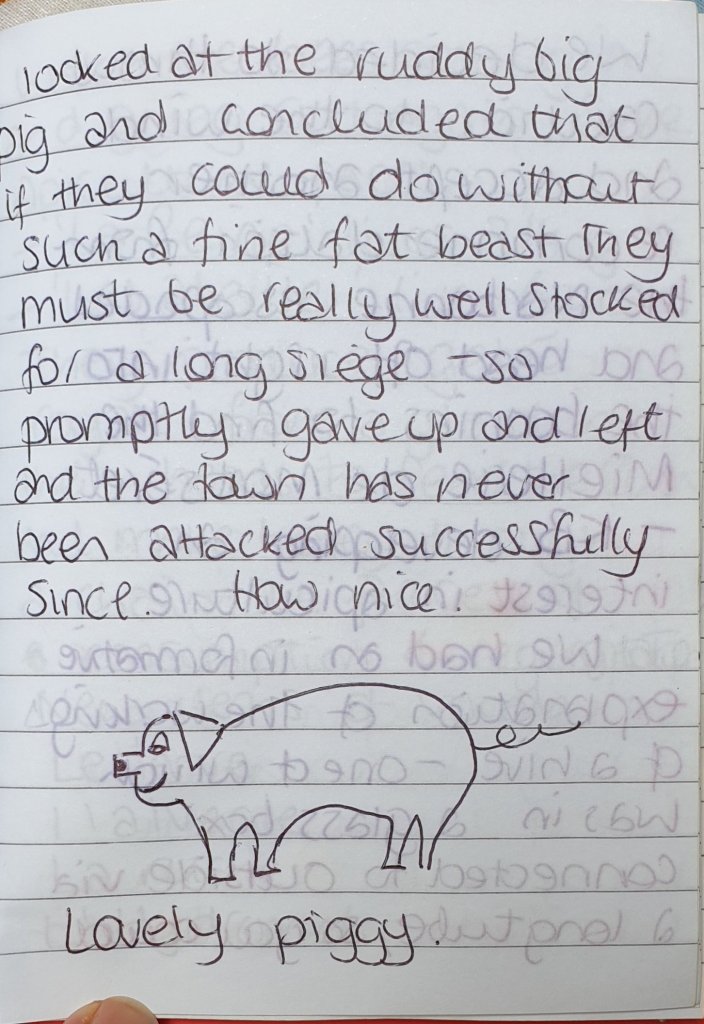 looked at the ruddy big
pig and concluded that
if they could do without
such a fine fat beast They
must be really well stocked
for a long siege - so
promptly gave up and left
and the town has never
been attacked successfully
since. How nice.
Lovely piggy.